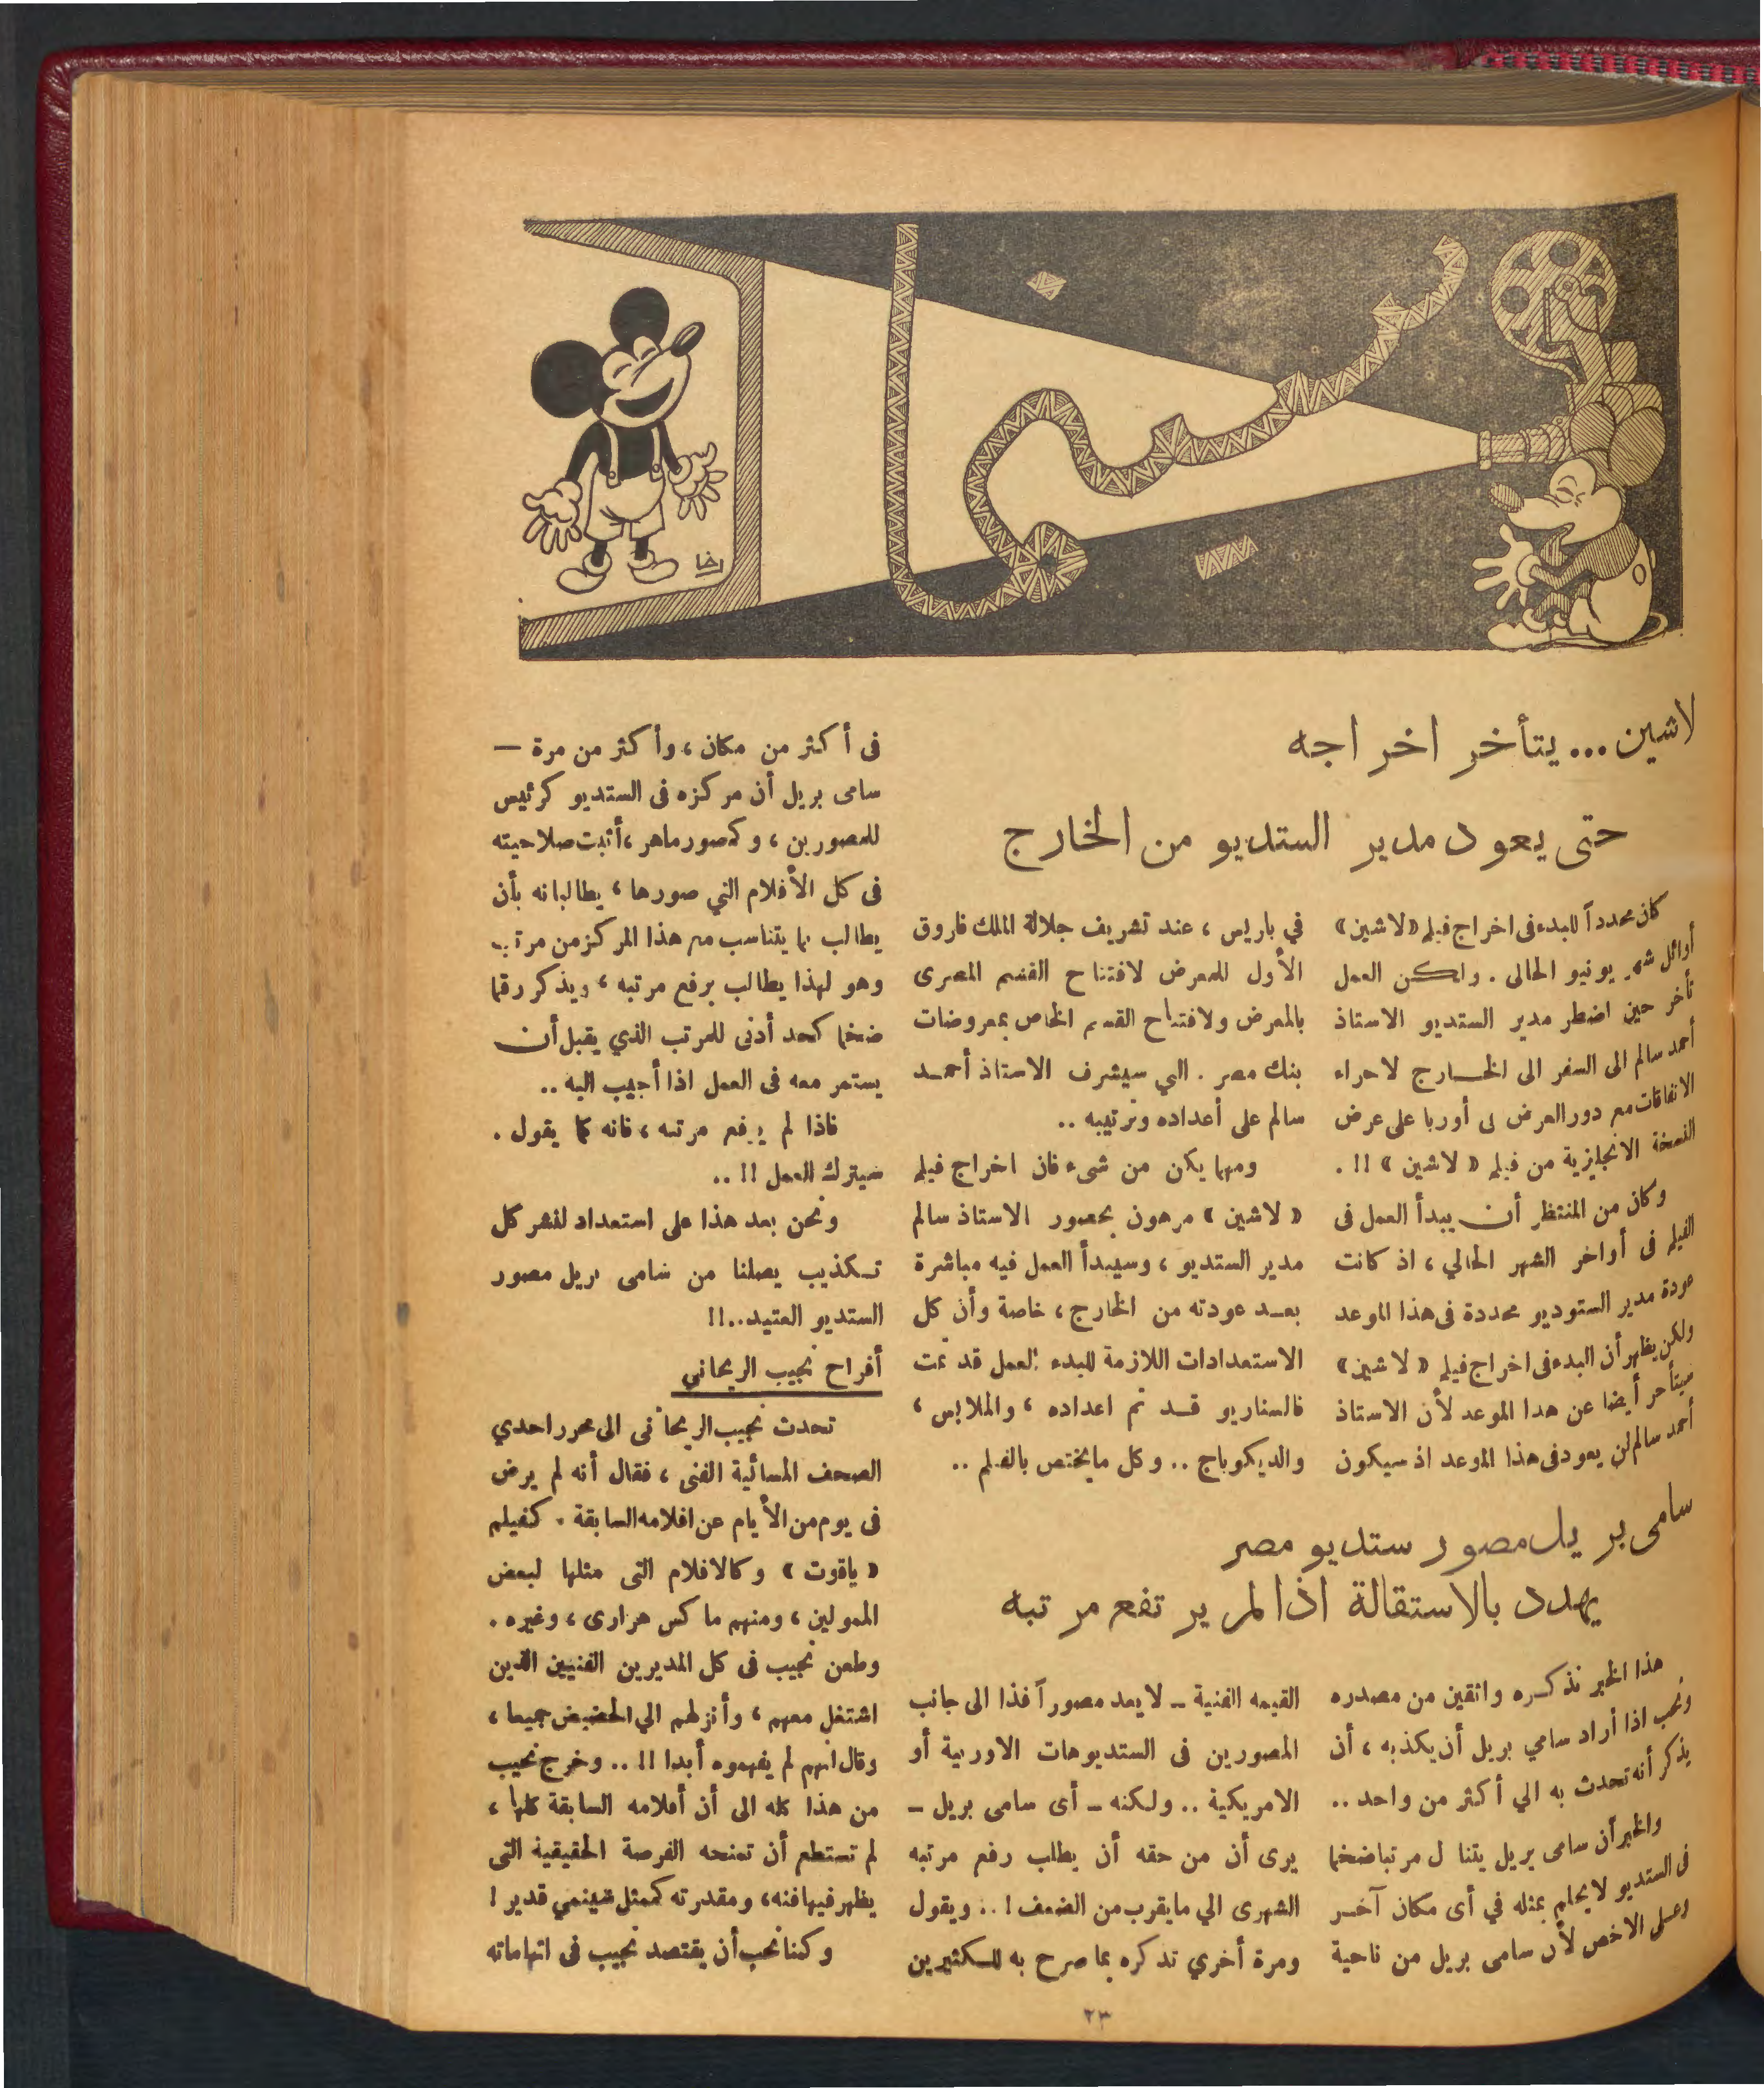 سينما
رخا
لاشين... يتأخر اخراجه
حتى يعود مدير الستديو من الخارج
كان محدداً للبدء فى اخراج فيلم «لاشين»
أوائل شهر يونيو الحالى . ولكن العمل
تأخر حين اضطر مدير الستديو الاستاذ
أحمد سالم الى السفر الى الخارج لاجراء
الاتفاقات مع دور العرض فى أوربا على عرض
النسخة الانجليزية من فيلم « لاشين » !! .
وكان من المنتظر أن يبدأ العمل فى
الفيلم فى أواخر الشهر الحالي ، اذ كانت
عودة مدير الستوديو محددة فى هذا الموعد
ولكن يظهر أن البدء فى اخراج فيلم « لاشين»
سيتأخر أيضا عن هذا الموعد لأن الاستاذ
أحمد سالم لن يعود فى هذا الموعد اذ سيكون
في باريس ، عند تشريف جلالة الملك فاروق
الأول للمعرض لافتتاح القسم المصرى
بالمعرض ولافتتاح القسم الخاص بمعروضات
بنك مصر . التي سيشرف الاستاذ أحمد
سالم على أعداده وترتيبه ..
ومهما يكن من شىء فان اخراج فيلم
« لاشين » مرهون بحضور الاستاذ سالم
مدير الستديو ، وسيبدأ العمل فيه مباشرة
بعد عودته من الخارج ، خاصة وأن كل
الاستعدادات اللازمة للبدء العمل قد تمت
فالسناريو قد تم اعداده ، والملابس ،
والديكوباج .. وكل مايختص بالفيلم ..
سامى بريل مصور ستديو مصر
يهدد بالاستقالة اذا لم يرتفع مرتبه
هذا الخبر نذكره واثقين من مصدره
ونحب اذا أراد سامي بريل أن يكذبه ، أن
يذكر أنه تحدث به الي أكثر من واحد ..
والخبر أن سامى بريل يتناول مرتبا ضخما
فى الستديو لا يحلم بمثله في أى مكان آخر
وعلى الاخص لأن سامى بريل من ناحية
القيمه الفنية ـ لا يعد مصوراً فذا الى جانب
المصورين فى الستديوهات الاوربية أو
الامريكية .. ولكنه ـ أى سامى بريل ـ
يرى أن من حقه أن يطلب رفع مرتبه
الشهرى الي مايقرب من الضعف ! .. ويقول
ومرة أخري تذكره بما صرح به للكثيرين
فى أكثر من مكان ، وأكثر من مرة —
سامى بريل أن مركزه فى الستديو كرئيس
للمصورين ، وكمصور ماهر ، أثبت صلاحيته
فى كل الأفلام التي صورها ، يطالبانه بأن
يطالب بما يتناسب مع هذا المركز من مرتب
وهو لهذا يطالب برفع مرتبه ، ويذكر رقما
ضخما كحد أدنى للمرتب الذي يقبل أن
يستمر معه فى العمل اذا أجيب اليه ..
فاذا لم يرفع مرتبه ، فانه كما يقول .
سيترك العمل !! ..
ونحن بعد هذا على استعداد لنشر كل
تكذيب يصلنا من سامى بريل مصور
الستديو العتيد..!!
أفراح نجيب الريحاني
تحدث نجيب الريحانى الى محرر احدي
الصحف المسائية الفنى ، فقال أنه لم يرض
فى يوم من الأيام عن افلامه السابقة . كفيلم
« ياقوت » وكالافلام التى مثلها لبعض
الممولين ، ومنهم ماكس هرارى ، وغيره .
وطعن نجيب فى كل المديرين الفنيين الذين
اشتغل معهم ، وأنزلهم الي الحضيض جميعا ،
وقال انهم لم يفهموه أبدا !! .. وخرج نجيب
من هذا كله الى أن أفلامه السابقة كلها ،
لم تستطع أن تمنحه الفرصة الحقيقية التى
يظهر فيها فنه ، ومقدرته كممثل سينمي قدير !
وكنا نحب أن يقتصد نجيب فى اتهاماته
٢٣